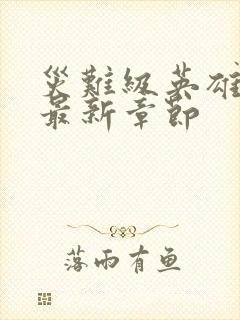 災難級英雄
最新章節
落雨有鱼